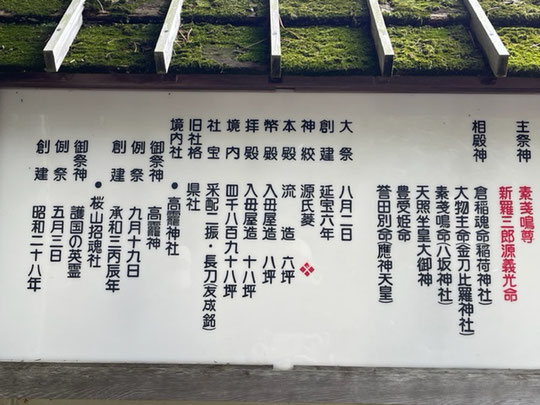 主祭神 素戔嗚尊
新羅三郎源義光命
相殿神 倉稲魂命(稲荷神社)
大物主命(金刀比羅神社)
素戔嗚命(八坂神社)
天照皇大御神
豊受姫命
誉田別命(應神天皇)
大祭 八月二日
創建 延宝六年
神紋 源氏菱
本殿 流造 六坪
幣殿 入毋屋造 八坪
拝殿 入毋屋造 十八坪
境内 四千八百九十八坪
社宝 采配二振・長刀(友成銘)
旧社格 県社
境内社 ●高龗神社
御祭神 高龗神
例祭 九月十九日
創建 承和三丙辰年
●桜山招魂社
御祭神 護国の英霊
例祭 五月三日
創建 昭和二十八年